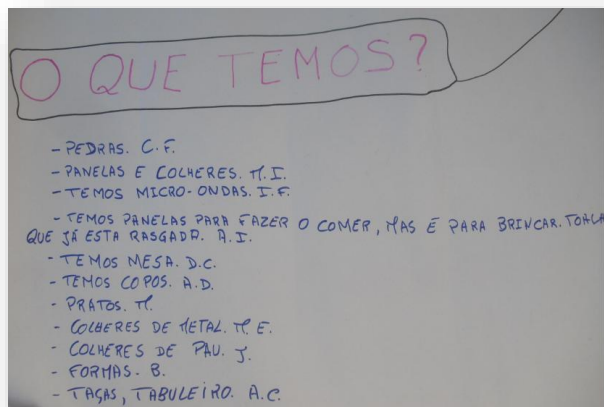 O QUE TEMOS?
- PEDRAS. C.F.
- PANELAS E COLHERES. M.I.
- TEMOS MICRO-ONDAS. I.F.
- TEMOS PANELAS PARA FAZER O COMER, MAS É PARA BRINCAR. TOALHA
QUE JÁ ESTA RASGADA. A.I.
- TEMOS MESA. D.C.
- TEMOS COPOS. A.D.
- PRATOS. M.
- COLHERES DE METAL. M.E.
- COLHERES DE PAU. J.
- FORMAS. B.
- TAÇAS, TABULEIRO. A.C.